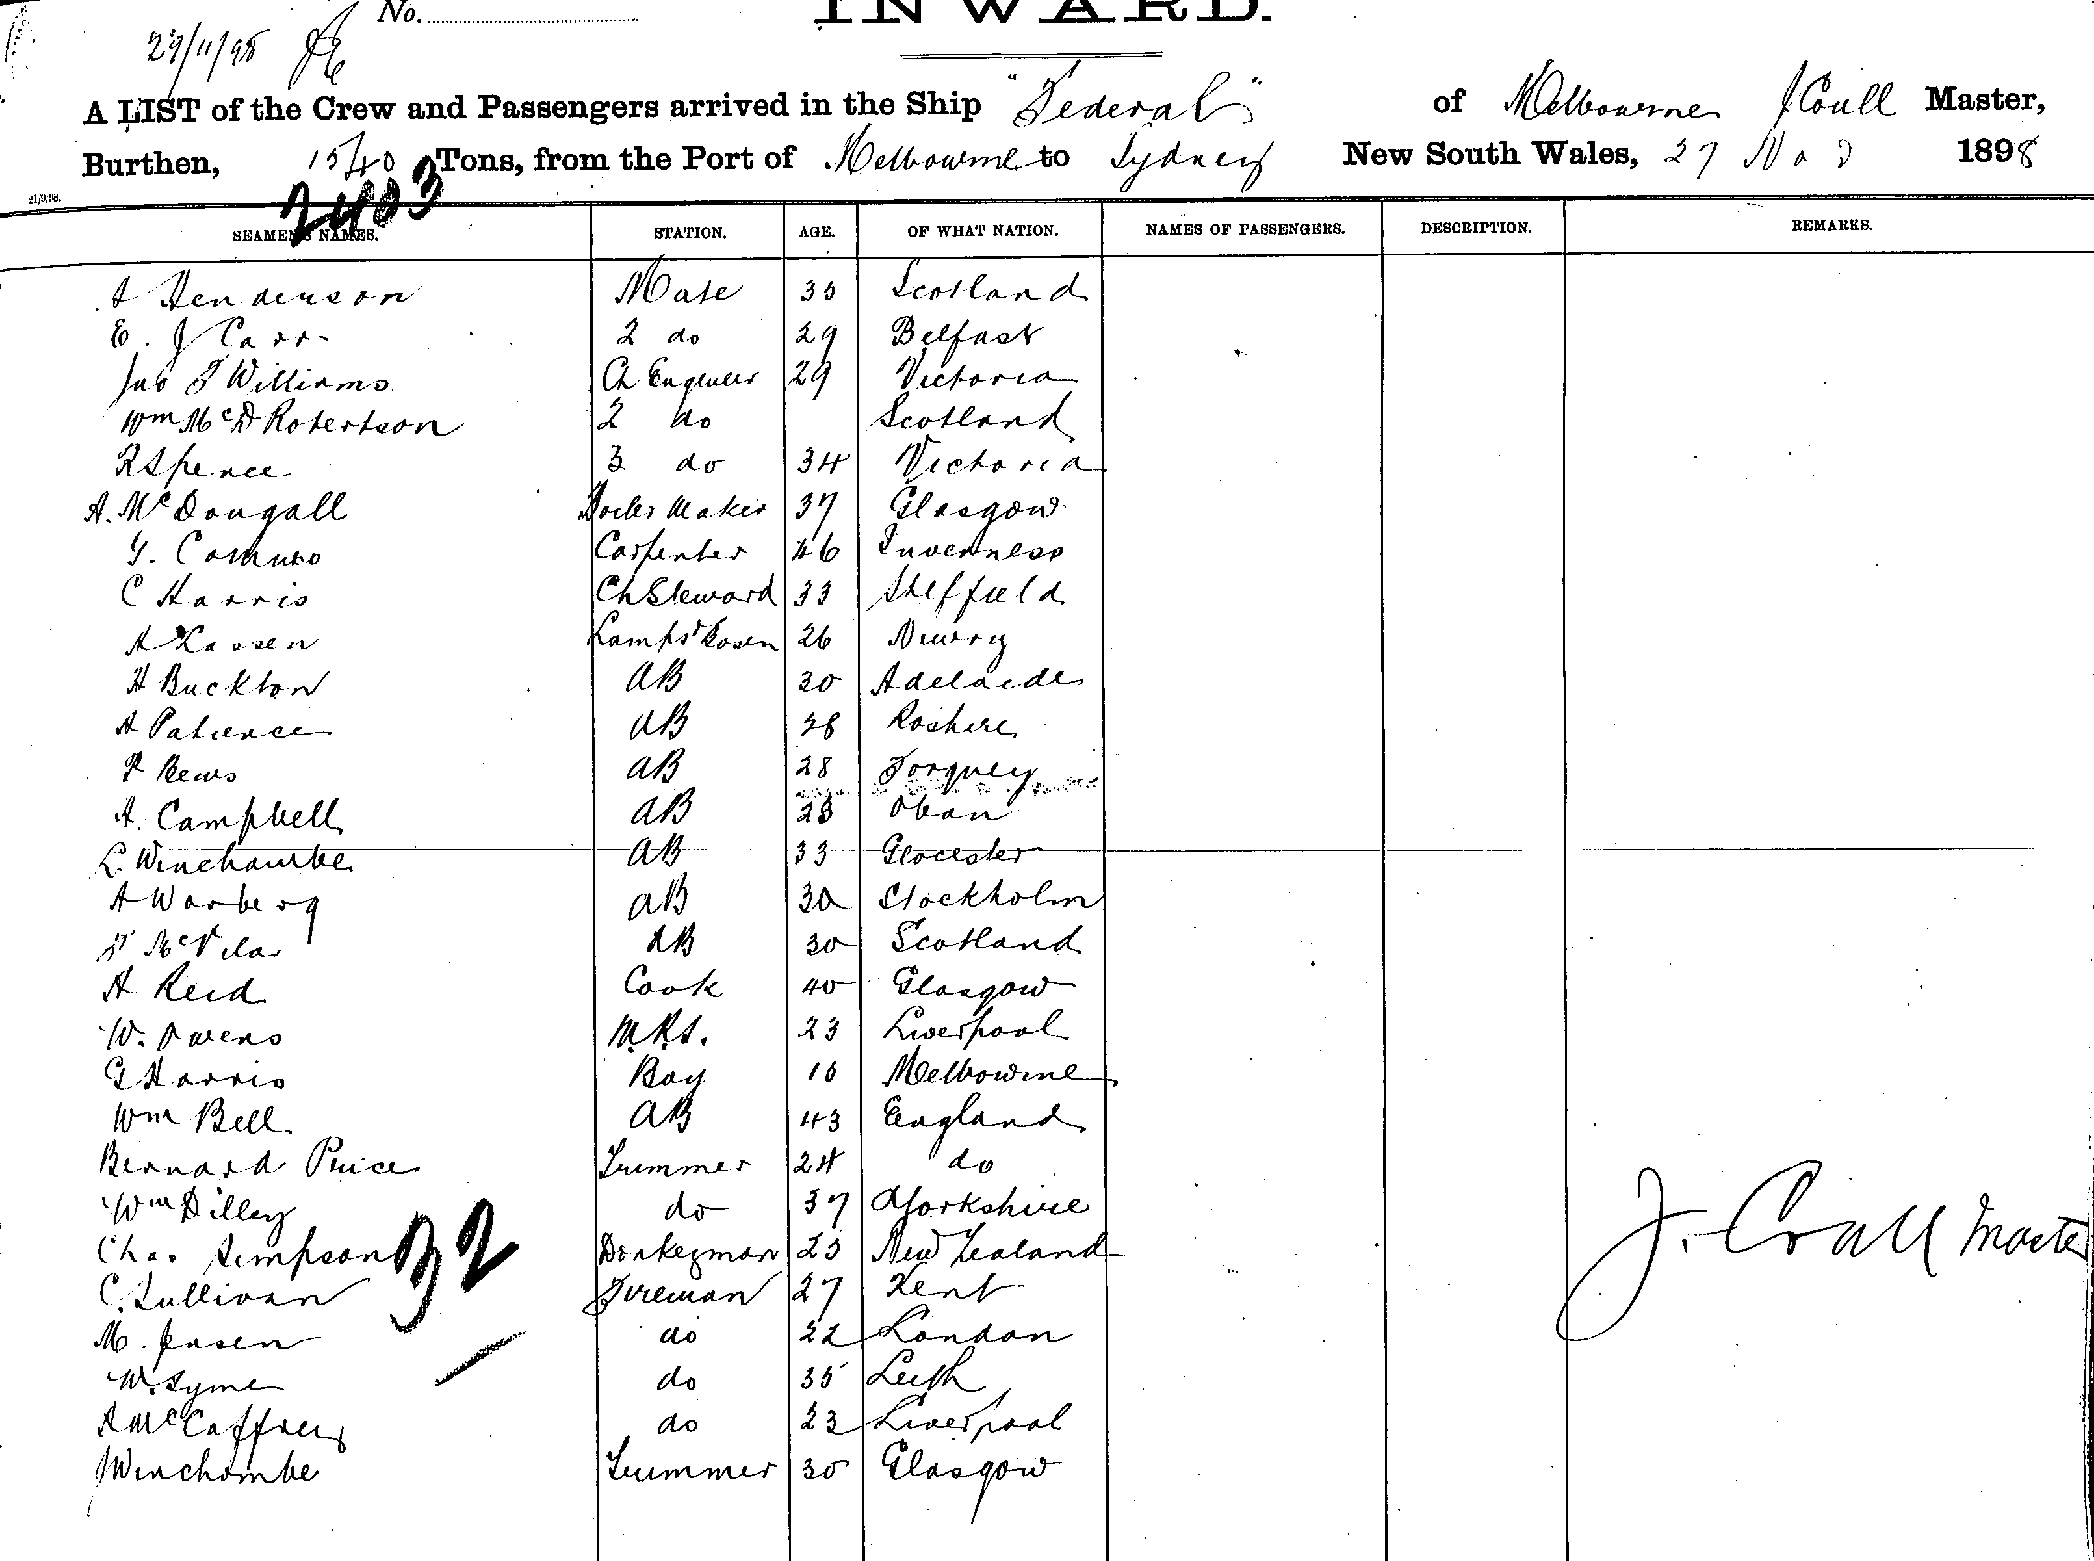 No.
INWARD.
29/11/98
A LIST of the Crew and Passengers arrived in the Ship "Federal" of Melbourne J Coull Master,
Burthen, 1540 Tons, from the Port of Melbourne to Sydney New South Wales, 27 Nov 1898
2403
SEAMENS NAMES. STATION. AGE. OF WHAT NATION. NAMES OF PASSENGERS. DESCRIPTION. REMARKS.
A Henderson Mate 35 Scotland
E. J Carr 2 do 29 Belfast
Jno T Williams Ch Engineer 29 Victoria
Wm McD Robertson 2 do Scotland
R Spence 3 do 34 Victoria
A. McDougall Boiler Maker 37 Glasgow
Carpenter 46 Inverness
C Harris Ch Steward 33 Sheffield
A Lassen Lamps & Bosen 26 Norway
H Buckton AB 30 Adelaide
A Patience AB 28 Roshire
Bews AB 28 Torquey
A. Campbell AB 28 Oban
L. Winchombe AB 33 Glocester
A Warberg AB 30 Stockholm
AB 30 Scotland
A Reid Cook 40 Glasgow
W. Owens M.R.S. 23 Liverpool
G Harris Boy 16 Melbourne
Wm Bell AB 43 England
Bernard Price Trimmer 24 do
Wm Dilley do 37 Yorkshire
Chas Simpson Donkeyman 25 New Zealand
C. Sullivan Fireman 27 Kent
M. Jnsen do 22 London
W. Syme do 35 Leith
McCaffrey do 23 Liverpool
J Winchombe Trimmer 30 Glasgow
32
J. Coull Master